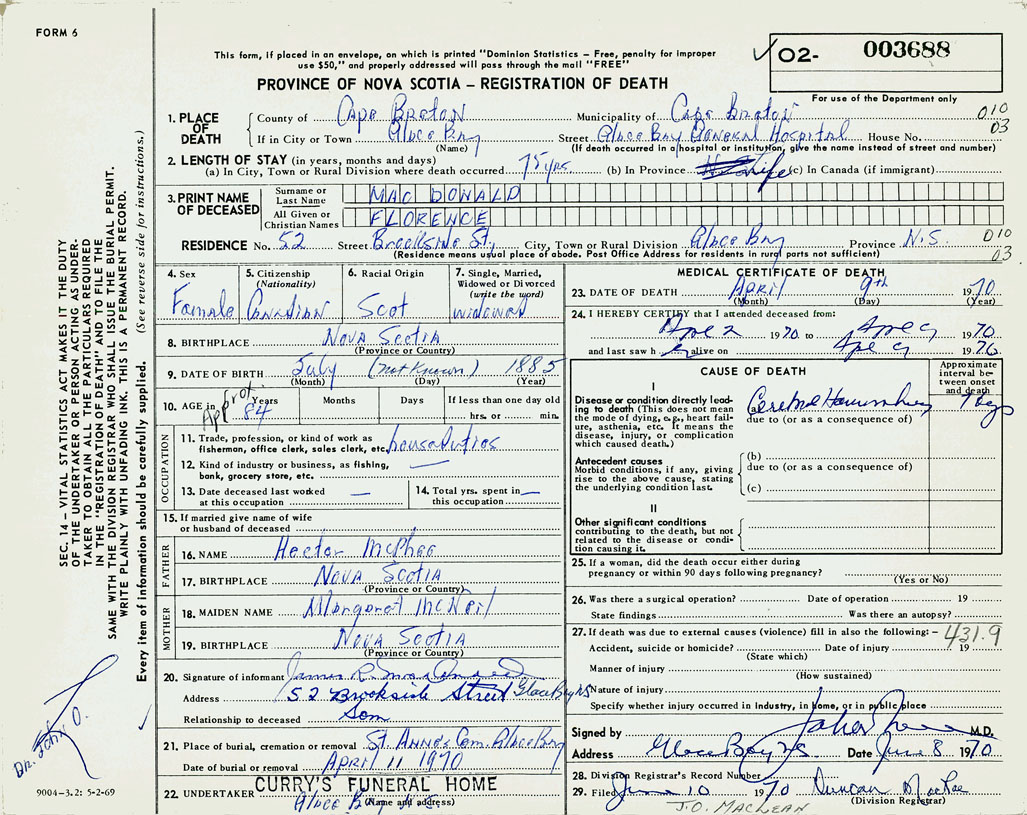 FORM 6
This form, if placed in an envelope, on which is printed "Dominion Statistics – Free, penalty for improper
use $50," and properly addressed will pass through the mail "FREE"
O2- 003688
For use of the Department only
PROVINCE OF NOVA SCOTIA – REGISTRATION OF DEATH
1. PLACE OF DEATH
County of Cape Breton Municipality of Cape Breton 010
If in City or Town Glace Bay Street Glace Bay General Hospital House No. 03
(Name) (If death occurred in a hospital or institution, give the name instead of street and number)
2. LENGTH OF STAY (in years, months and days)
(a) In City, Town or Rural Division where death occurred 75 yrs. (b) In Province Life (c) In Canada (if immigrant)
3. PRINT NAME OF DECEASED
Surname or Last Name MAC DONALD
All Given or Christian Names FLORENCE
RESIDENCE No. 52 Street Brookside St. City, Town or Rural Division Glace Bay Province N.S. 010
(Residence means usual place of abode. Post Office Address for residents in rural parts not sufficient) 03
4. Sex
Female
5. Citizenship
(Nationality)
Canadian
6. Racial Origin
Scot
7. Single, Married,
Widowed or Divorced
(write the word)
widowed
8. BIRTHPLACE Nova Scotia
(Province or Country)
9. DATE OF BIRTH July (not known) 1885
(Month) (Day) (Year)
10. AGE in Approx. 84 Years Months Days If less than one day old
hrs. or min.
OCCUPATION
11. Trade, profession, or kind of work as
fisherman, office clerk, sales clerk, etc. house duties
12. Kind of industry or business, as fishing, —
bank, grocery store, etc.
13. Date deceased last worked —
at this occupation
14. Total yrs. spent in —
this occupation
15. If married give name of wife
or husband of deceased
FATHER
16. NAME Hector McPhee
17. BIRTHPLACE Nova Scotia
(Province or Country)
MOTHER
18. MAIDEN NAME Margaret McNeil
19. BIRTHPLACE Nova Scotia
(Province or Country)
20. Signature of informant James R. MacDonald
Address 52 Brookside Street Glace Bay NS
Relationship to deceased Son
21. Place of burial, cremation or removal St. Anne's Cem. Glace Bay
Date of burial or removal April 11 1970
22. UNDERTAKER CURRY'S FUNERAL HOME
(Name and address)
Glace Bay NS
MEDICAL CERTIFICATE OF DEATH
23. DATE OF DEATH April 9th 1970
(Month) (Day) (Year)
24. I HEREBY CERTIFY that I attended deceased from:
Apr 2 1970 to Apr 9 1970
and last saw h er alive on Apr 9 1970
CAUSE OF DEATH
Approximate
interval be-
tween onset
and death
I
Disease or condition directly lead-
ing to death (This does not mean
the mode of dying, e.g., heart fail-
ure, asthenia, etc. It means the
disease, injury, or complication
which caused death.)
(a) Cerebral Haemorrhage 7 days
due to (or as a consequence of)
Antecedent causes
Morbid conditions, if any, giving
rise to the above cause, stating
the underlying condition last.
(b)
due to (or as a consequence of)
(c)
II
Other significant conditions
contributing to the death, but not
related to the disease or condi-
tion causing it.
25. If a woman, did the death occur either during
pregnancy or within 90 days following pregnancy?
(Yes or No)
26. Was there a surgical operation? Date of operation 19
State findings Was there an autopsy?
27. If death was due to external causes (violence) fill in also the following: – 431.9
Accident, suicide or homicide? Date of injury 19
(State which)
Manner of injury
(How sustained)
Nature of injury
Specify whether injury occurred in industry, in home, or in public place
Signed by M.D.
Address Glace Bay NS Date June 8 1970
28. Division Registrar's Record Number
29. Filed June 10 1970 Duncan MacRae
(Division Registrar)
J.O. MACLEAN
SEC. 14 – VITAL STATISTICS ACT MAKES IT THE DUTY
OF THE UNDERTAKER OR PERSON ACTING AS UNDER-
TAKER TO OBTAIN ALL THE PARTICULARS REQUIRED
IN THE "REGISTRATION OF DEATH" AND TO FILE THE
SAME WITH THE DIVISION REGISTRAR WHO SHALL ISSUE THE BURIAL PERMIT.
WRITE PLAINLY WITH UNFADING INK. THIS IS A PERMANENT RECORD.
Every item of information should be carefully supplied. (See reverse side for instructions.)
Dr. John O.
9004-3.2: 5-2-69